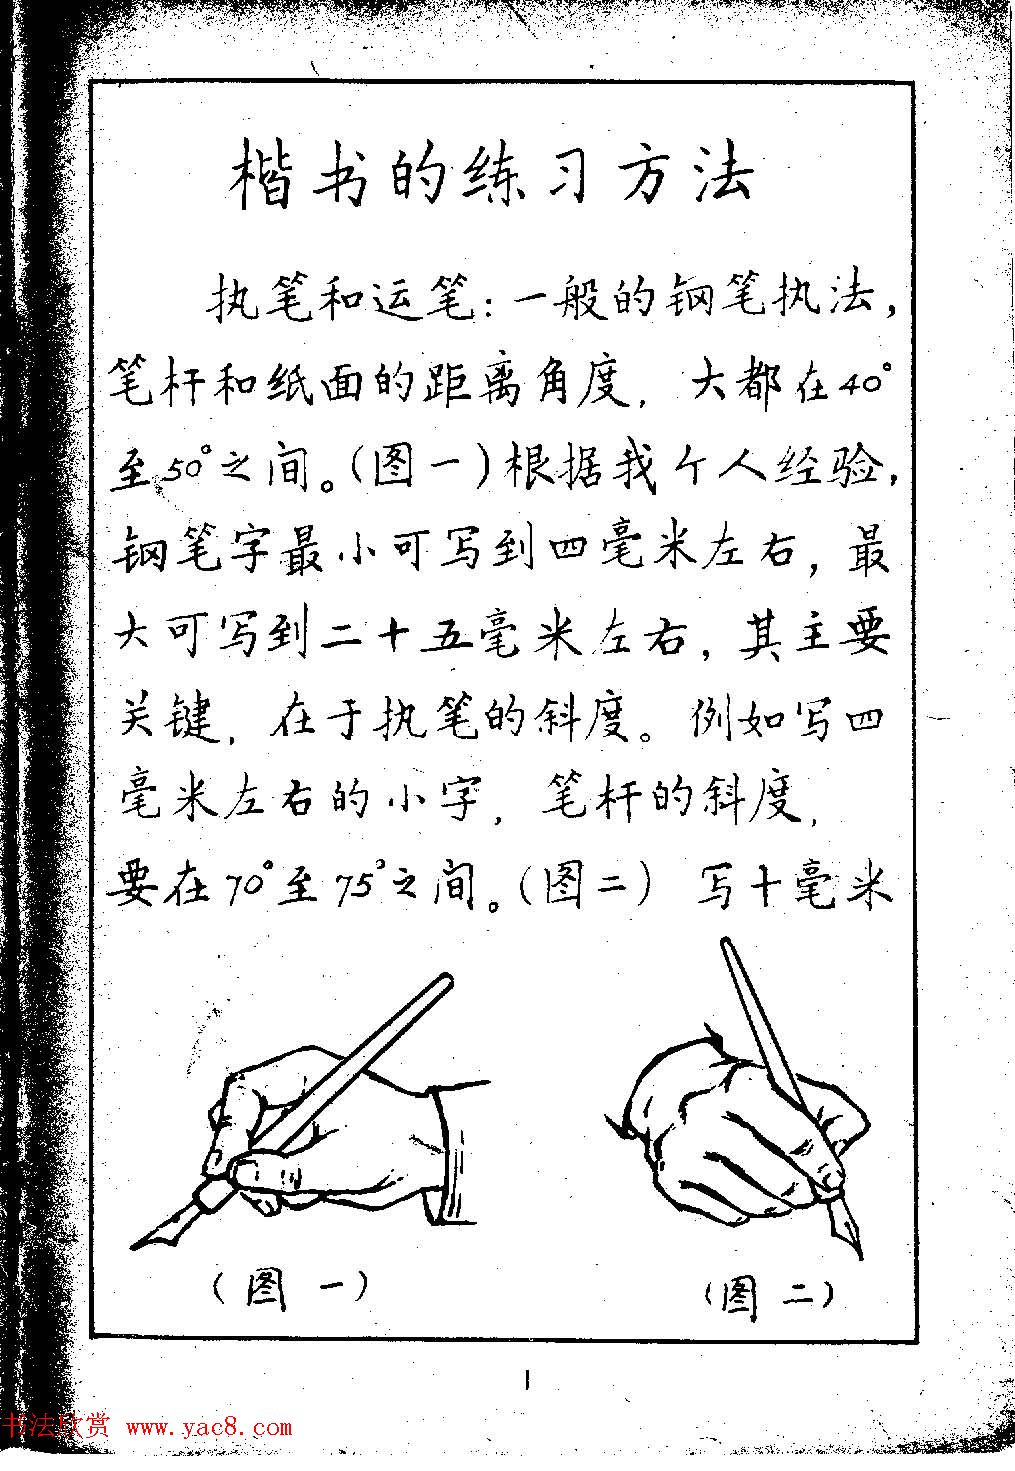 楷书的练习方法
执笔和运笔：一般的钢笔执法，
笔杆和纸面的距离角度，大都在40°
至50°之间。（图一）根据我个人经验，
钢笔字最小可写到四毫米左右，最
大可写到二十五毫米左右，其主要
关键，在于执笔的斜度。例如写四
毫米左右的小字，笔杆的斜度，
要在70°至75°之间。（图二）写十毫米
（图一）
（图二）
1
书法欣赏 www.yac8.com